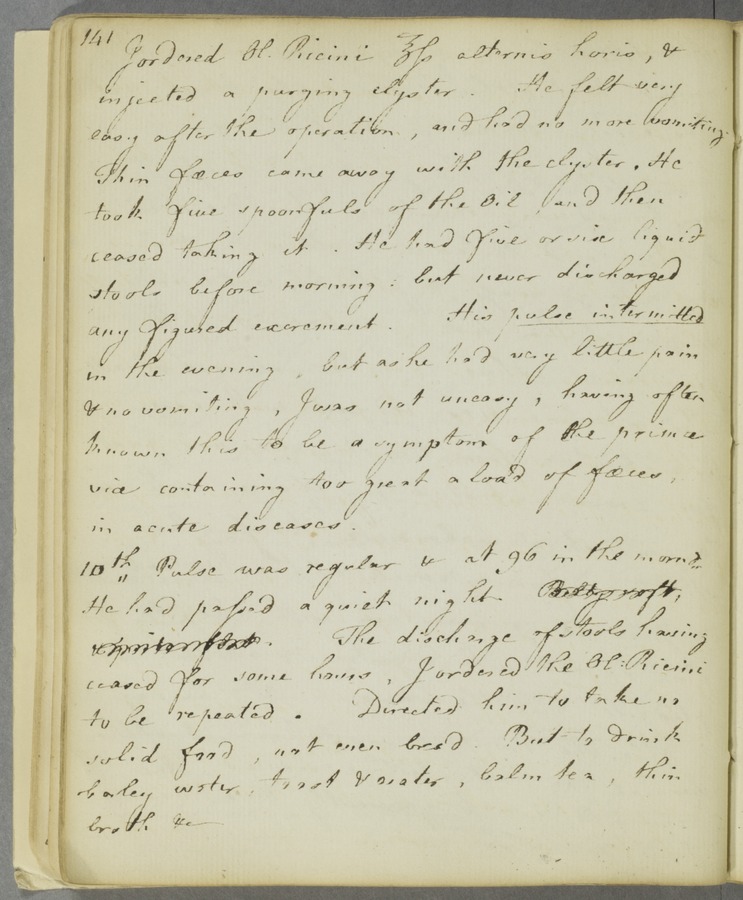 141
I ordered Ol. Ricini ℥ſs alternis horis, &
injected a purging clyster. He felt very
easy after the operation, and had no more vomiting.
Thin fæces came away with the clyster. He
took five spoonfuls of the Oil, and then
ceased taking it. He had five or six liquid
stools before morning: but never discharged
any figured excrement. His pulse intermitted
in the evening, but as he had very little pain
& no vomiting, I was not uneasy, having often
known this to be a symptom of the primæ
viæ containing too great a load of fæces,
in acute diseases.
10th Pulse was regular & at 96 in the morng.
He had paſsed a quiet night. Belly soft,
The discharge of stools having
ceased for some hours, I ordered the Ol: Ricini
to be repeated. Directed him to take no
solid food, not even bread. But to drink
barley water, toast & water, balm tea, thin
broth &c